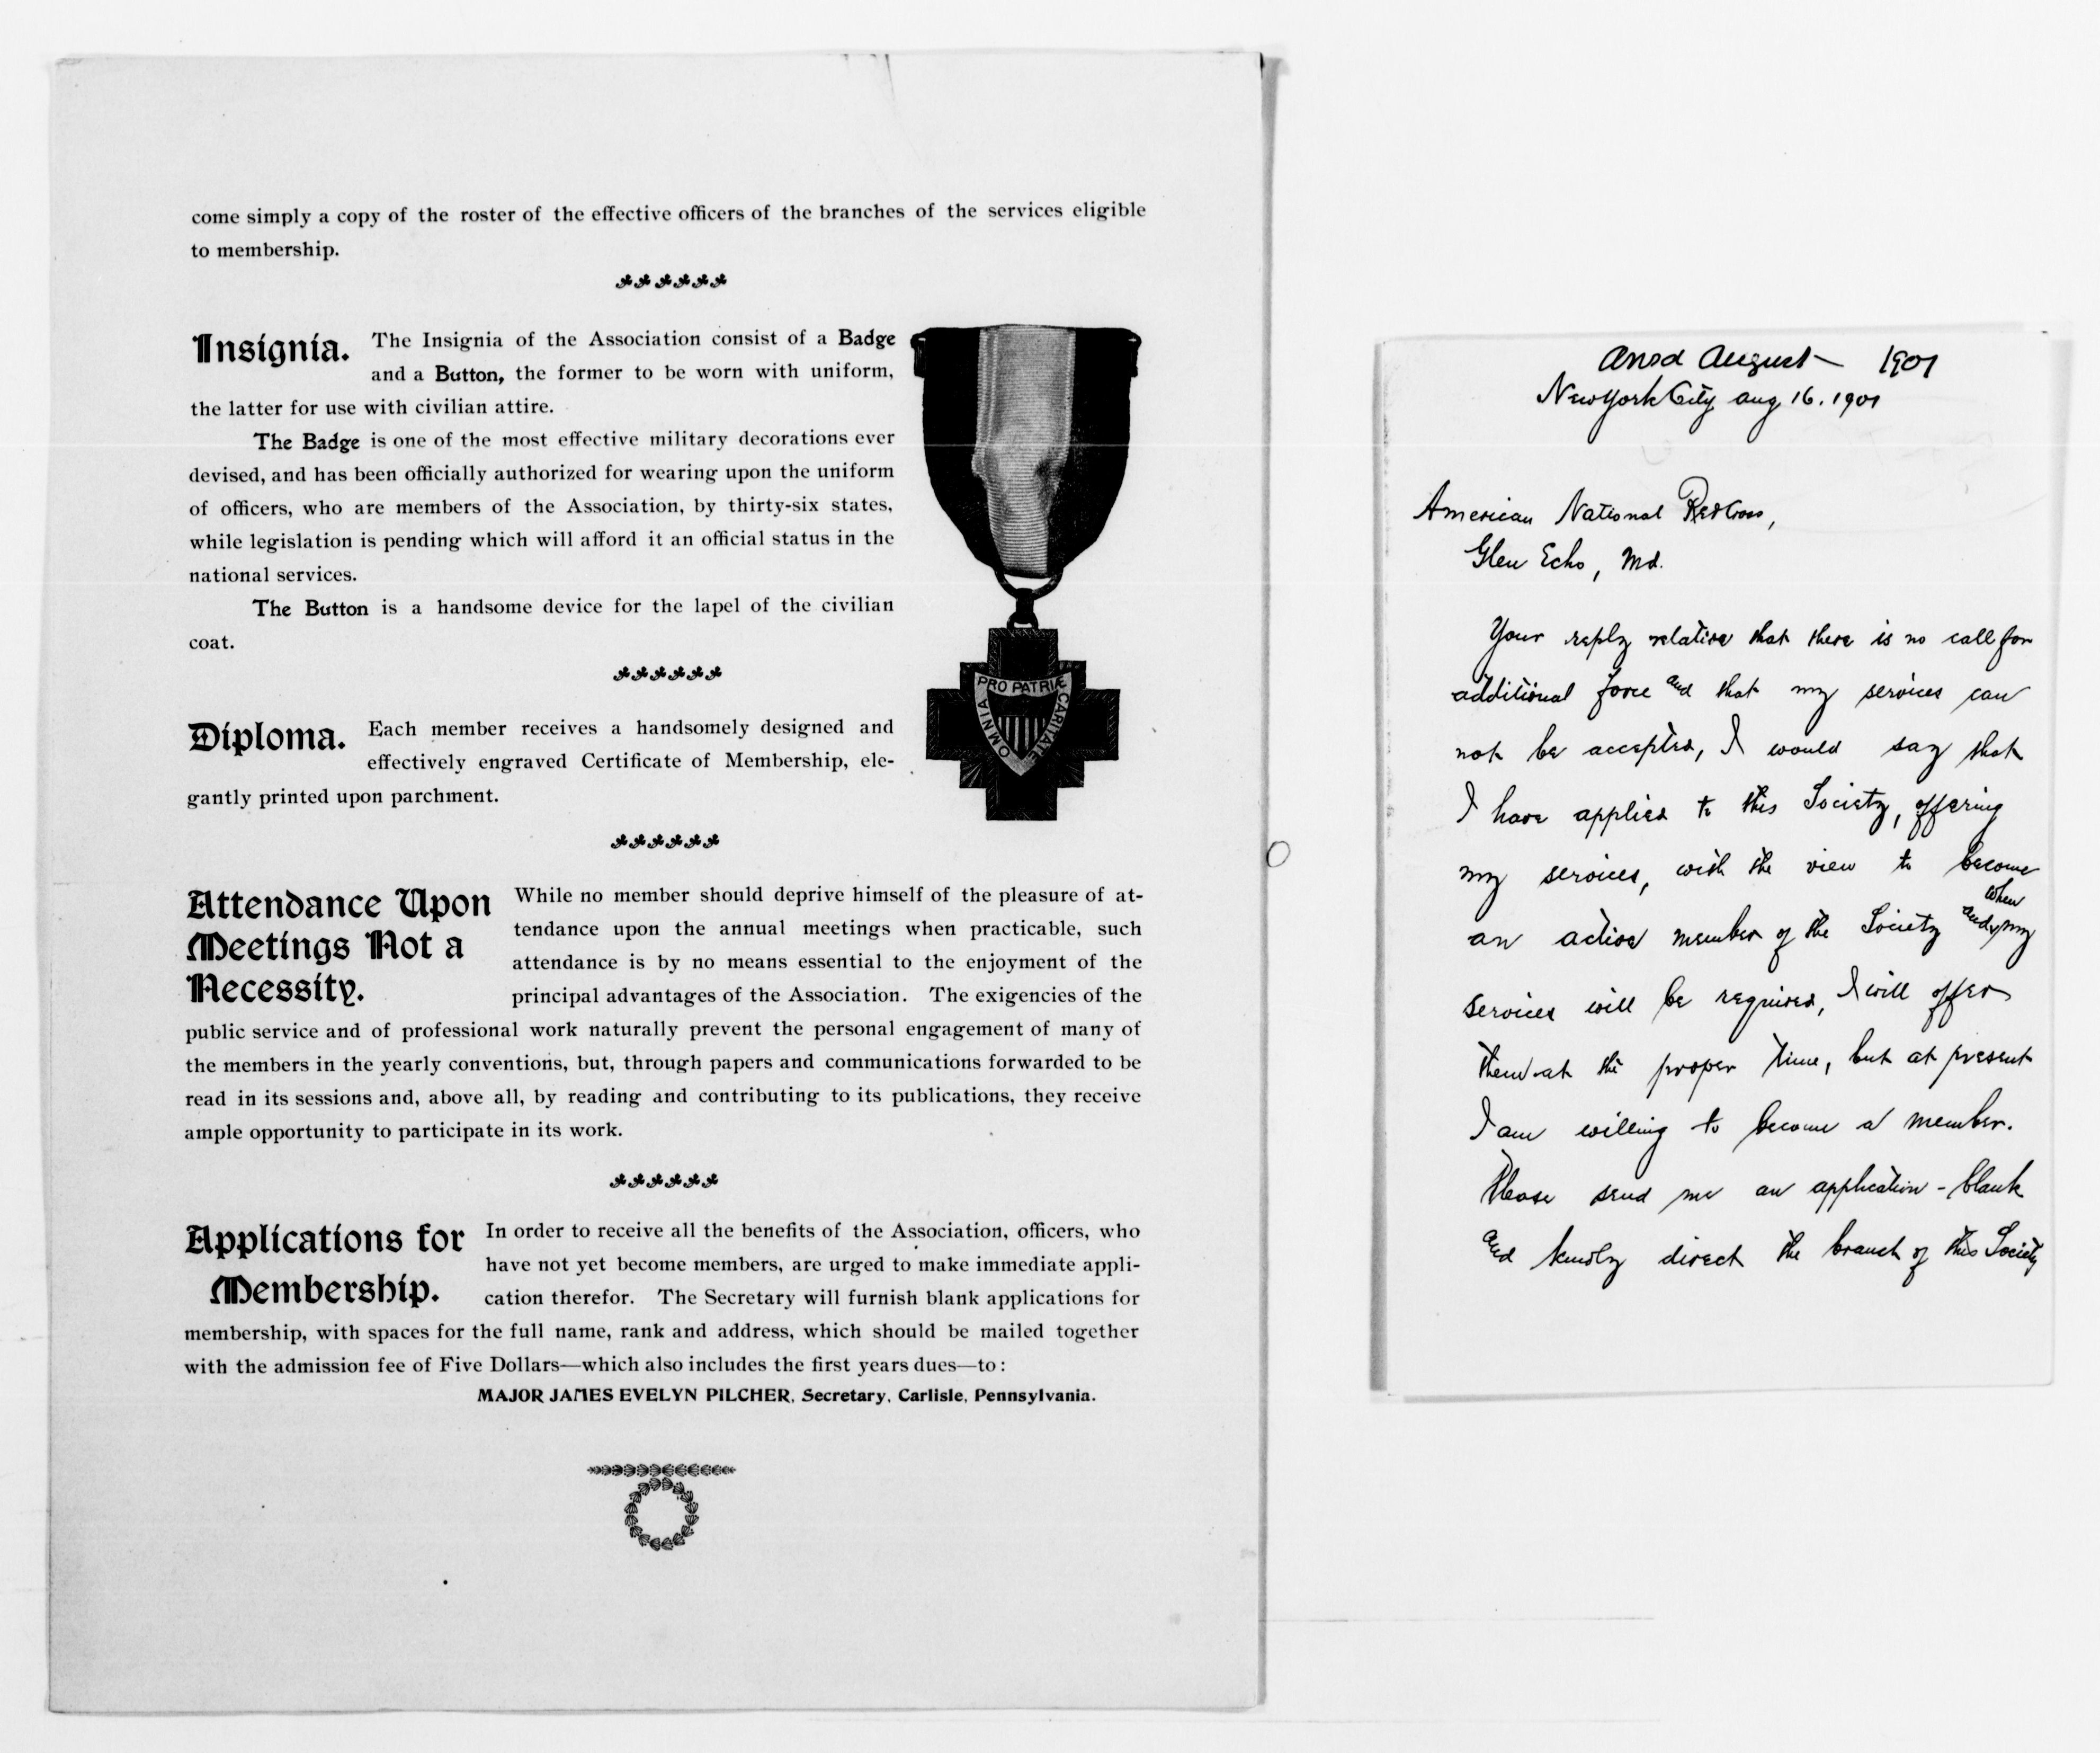 come simply a copy of the roster of the effective officers of the branches of the services eligible
to membership.
Insignia. The Insignia of the Association consist of a Badge
and a Button, the former to be worn with uniform,
the latter for use with civilian attire.
The Badge is one of the most effective military decorations ever
devised, and has been officially authorized for wearing upon the uniform
of officers, who are members of the Association, by thirty-six states,
while legislation is pending which will afford it an official status in the
national services.
The Button is a handsome device for the lapel of the civilian
coat.
PRO PATRIÆ
OMNIA
CARITATE
Diploma. Each member receives a handsomely designed and
effectively engraved Certificate of Membership, ele-
gantly printed upon parchment.
Attendance Upon
Meetings Not a
Necessity.
While no member should deprive himself of the pleasure of at-
tendance upon the annual meetings when practicable, such
attendance is by no means essential to the enjoyment of the
principal advantages of the Association. The exigencies of the
public service and of professional work naturally prevent the personal engagement of many of
the members in the yearly conventions, but, through papers and communications forwarded to be
read in its sessions and, above all, by reading and contributing to its publications, they receive
ample opportunity to participate in its work.
Applications for
Membership.
In order to receive all the benefits of the Association, officers, who
have not yet become members, are urged to make immediate appli-
cation therefor. The Secretary will furnish blank applications for
membership, with spaces for the full name, rank and address, which should be mailed together
with the admission fee of Five Dollars—which also includes the first years dues—to:
MAJOR JAMES EVELYN PILCHER, Secretary, Carlisle, Pennsylvania.
August 1901
New York City Aug 16. 1901
American National Red Cross,
Glen Echo, Md.
Your reply relative that there is no call for
additional force and that my services can
not be accepted, I would say that
I have applied to this Society, offering
my services, with the view to become
an active member of the Society and when my
services will be required, I will offer
them at the proper time, but at present
I am willing to become a member.
Please send me an application-blank
and kindly direct the branch of this Society